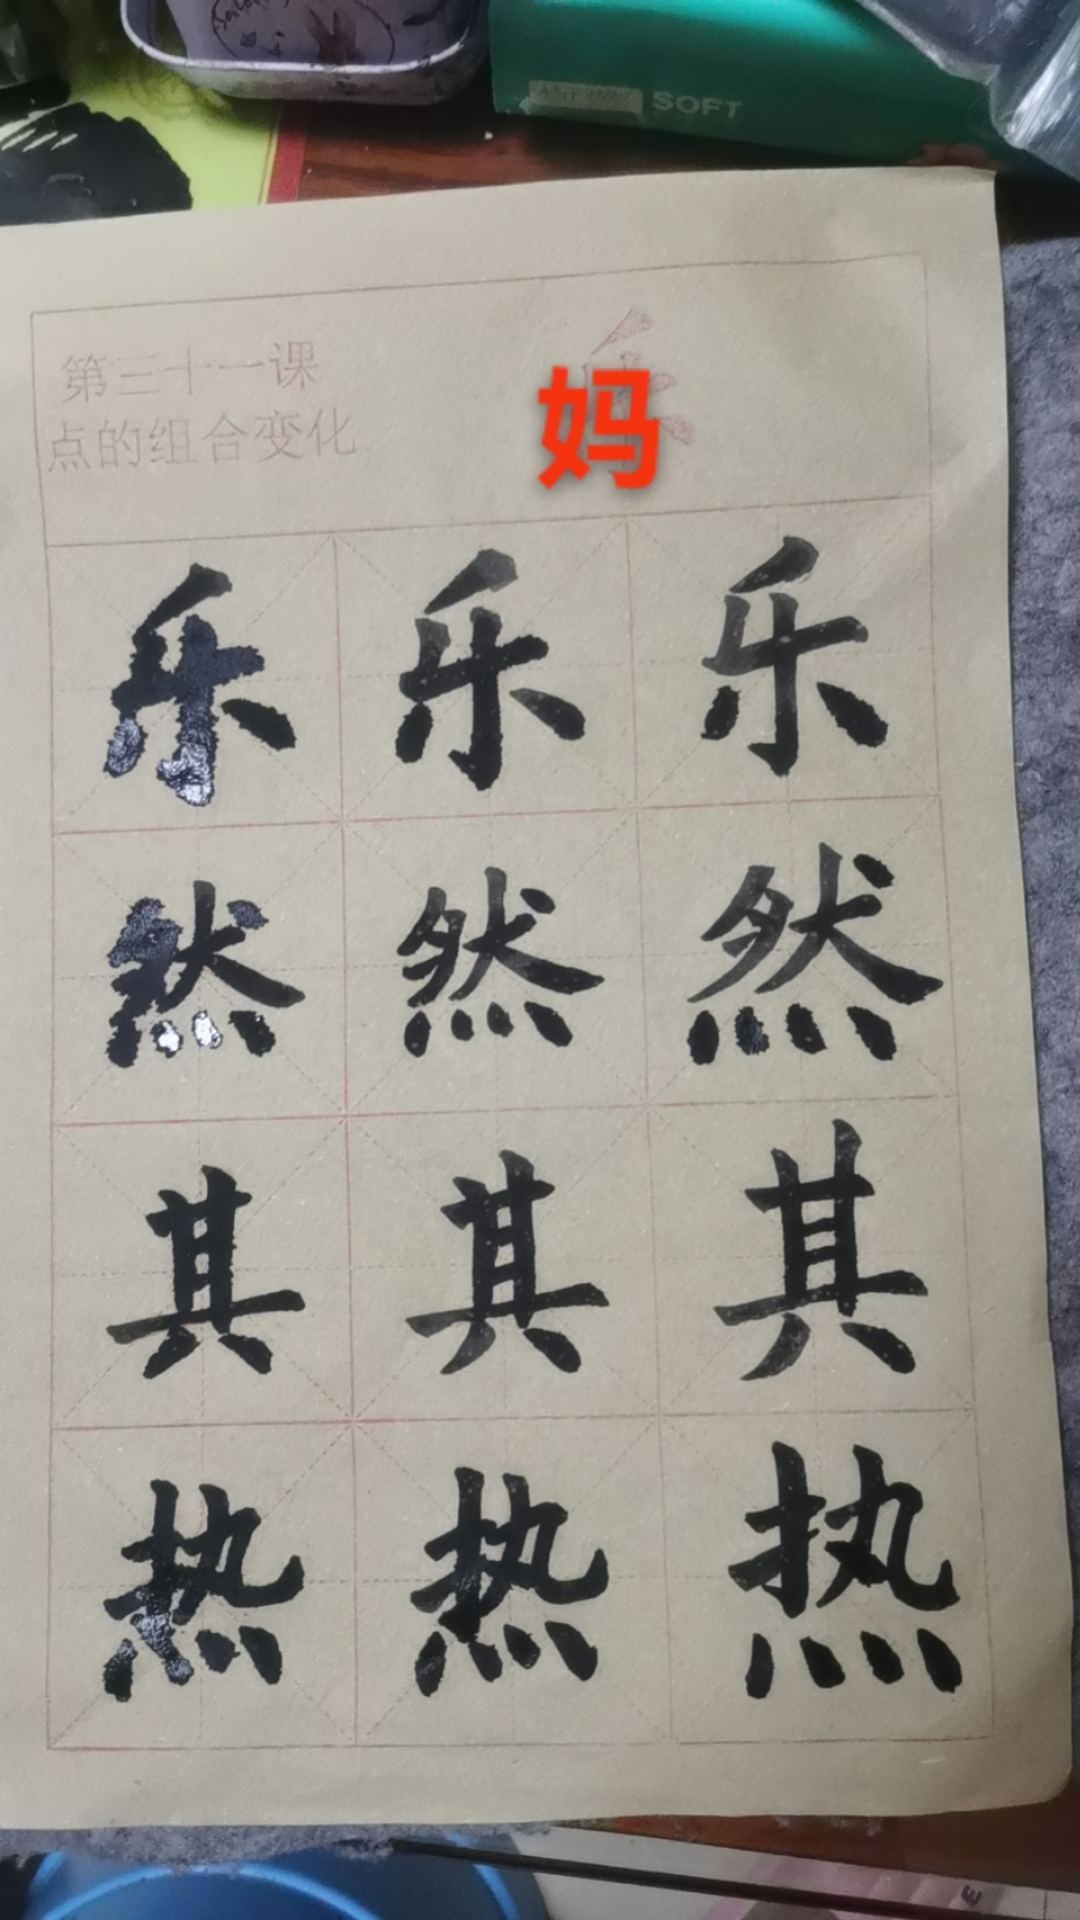 SOFT
第三十一课
点的组合变化
乐
妈
乐 乐 乐
然 然 然
其 其 其
热 热 热